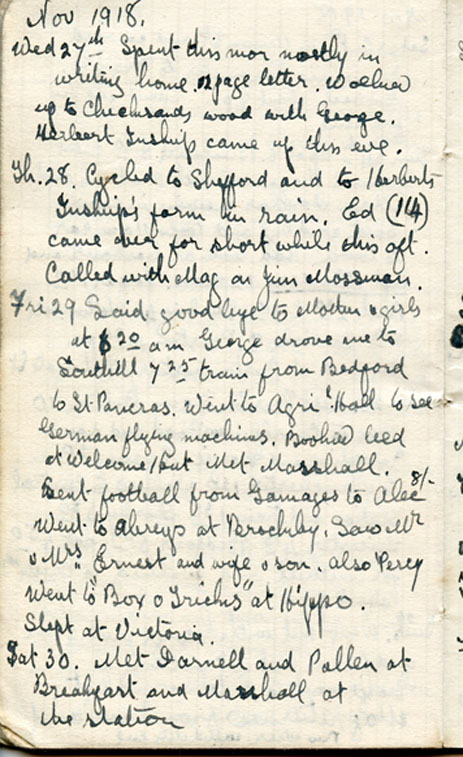 Nov 1918.
Wed 27th Spent this mor mostly in
writing home. 12 page letter. Walked
up to Chicksands wood with George.
Herbert Inskip came up this eve.
Th. 28. Cycled to Shefford and to Herbert
Inskip's farm in rain. Ed (14)
came over for short while this aft.
Called with Mag on Jim Mossman.
Fri 29 Said good bye to Mother & girls
at 6 20 am George drove me to
Southill 7 25 train from Bedford
to St Pancras. Went to Agri. Hall to see
German flying machines. Booked bed
at Welcome Hut Met Marshall.
Sent football from Gamages to Alec 8/-
Went to at Brockley. Saw Mr
& Mrs " Ernest and wife & son. also Percy
Went to "Box o Tricks" at Hippo.
Slept at Victoria.
Sat 30. Met Darnell and Pallen at
Breakfast and Marshall at
the station